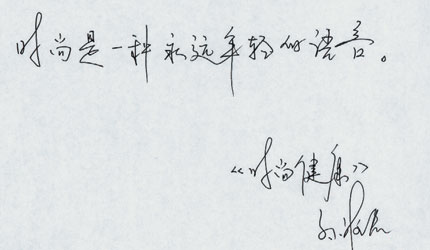 时尚是一种永远年轻的语言。
《时尚健康》